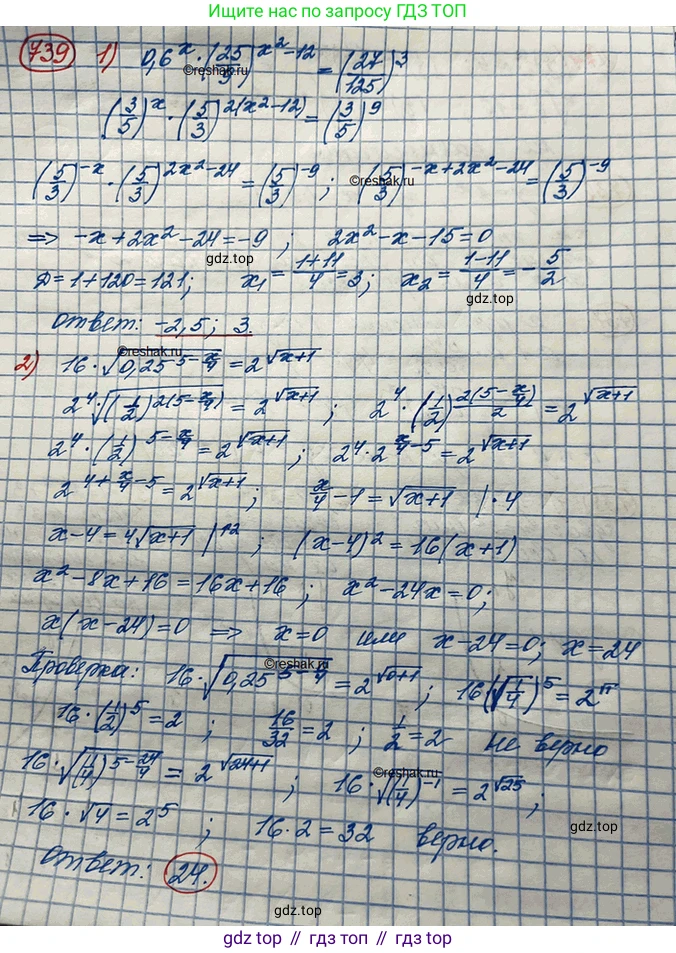 Ищите нас по запросу ГДЗ ТОП
739 1) 0,6^x · (25/9)^(x²-12) = (27/125)^3
©reshak.ru
(3/5)^x · (5/3)^(2(x²-12)) = (3/5)^9
(5/3)^(-x) · (5/3)^(2x²-24) = (5/3)^(-9) ; (5/3)^(-x+2x²-24) = (5/3)^(-9)
©reshak.ru
=> -x+2x²-24=-9 ; 2x²-x-15=0
gdz.top
D=1+120=121; x₁ = (1+11)/4 = 3; x₂ = (1-11)/4 = -5/2
gdz.top
ответ: -2,5; 3.
©reshak.ru
2) 16·√(0,25^(5-x/4)) = 2^√(x+1)
2^4·√((1/2)^(2(5-x/4))) = 2^√(x+1) ; 2^4·(1/2)^(2(5-x/4)/2) = 2^√(x+1)
2^4·(1/2)^(5-x/4) = 2^√(x+1) ; 2^4·2^(x/4-5) = 2^√(x+1)
2^(4+x/4-5) = 2^√(x+1) ; x/4-1=√(x+1) |·4
x-4=4√(x+1) |↑2 ; (x-4)²=16(x+1)
x²-8x+16=16x+16 ; x²-24x=0;
x(x-24)=0 => x=0 или x-24=0; x=24
©reshak.ru
Проверка: 16·√(0,25^(5-0/4)) = 2^√(0+1) ; 16(√(1/4))^5 = 2^√1
16·(1/2)^5=2 ; 16/32=2 ; 1/2=2 не верно
16·√((1/4)^(5-24/4)) = 2^√(24+1) ; 16·√((1/4)^(-1)) = 2^√25 ;
©reshak.ru
16·√4=2^5 ; 16·2=32 верно.
gdz.top
ответ: 24.
gdz.top
gdz top // гдз топ // gdz.top